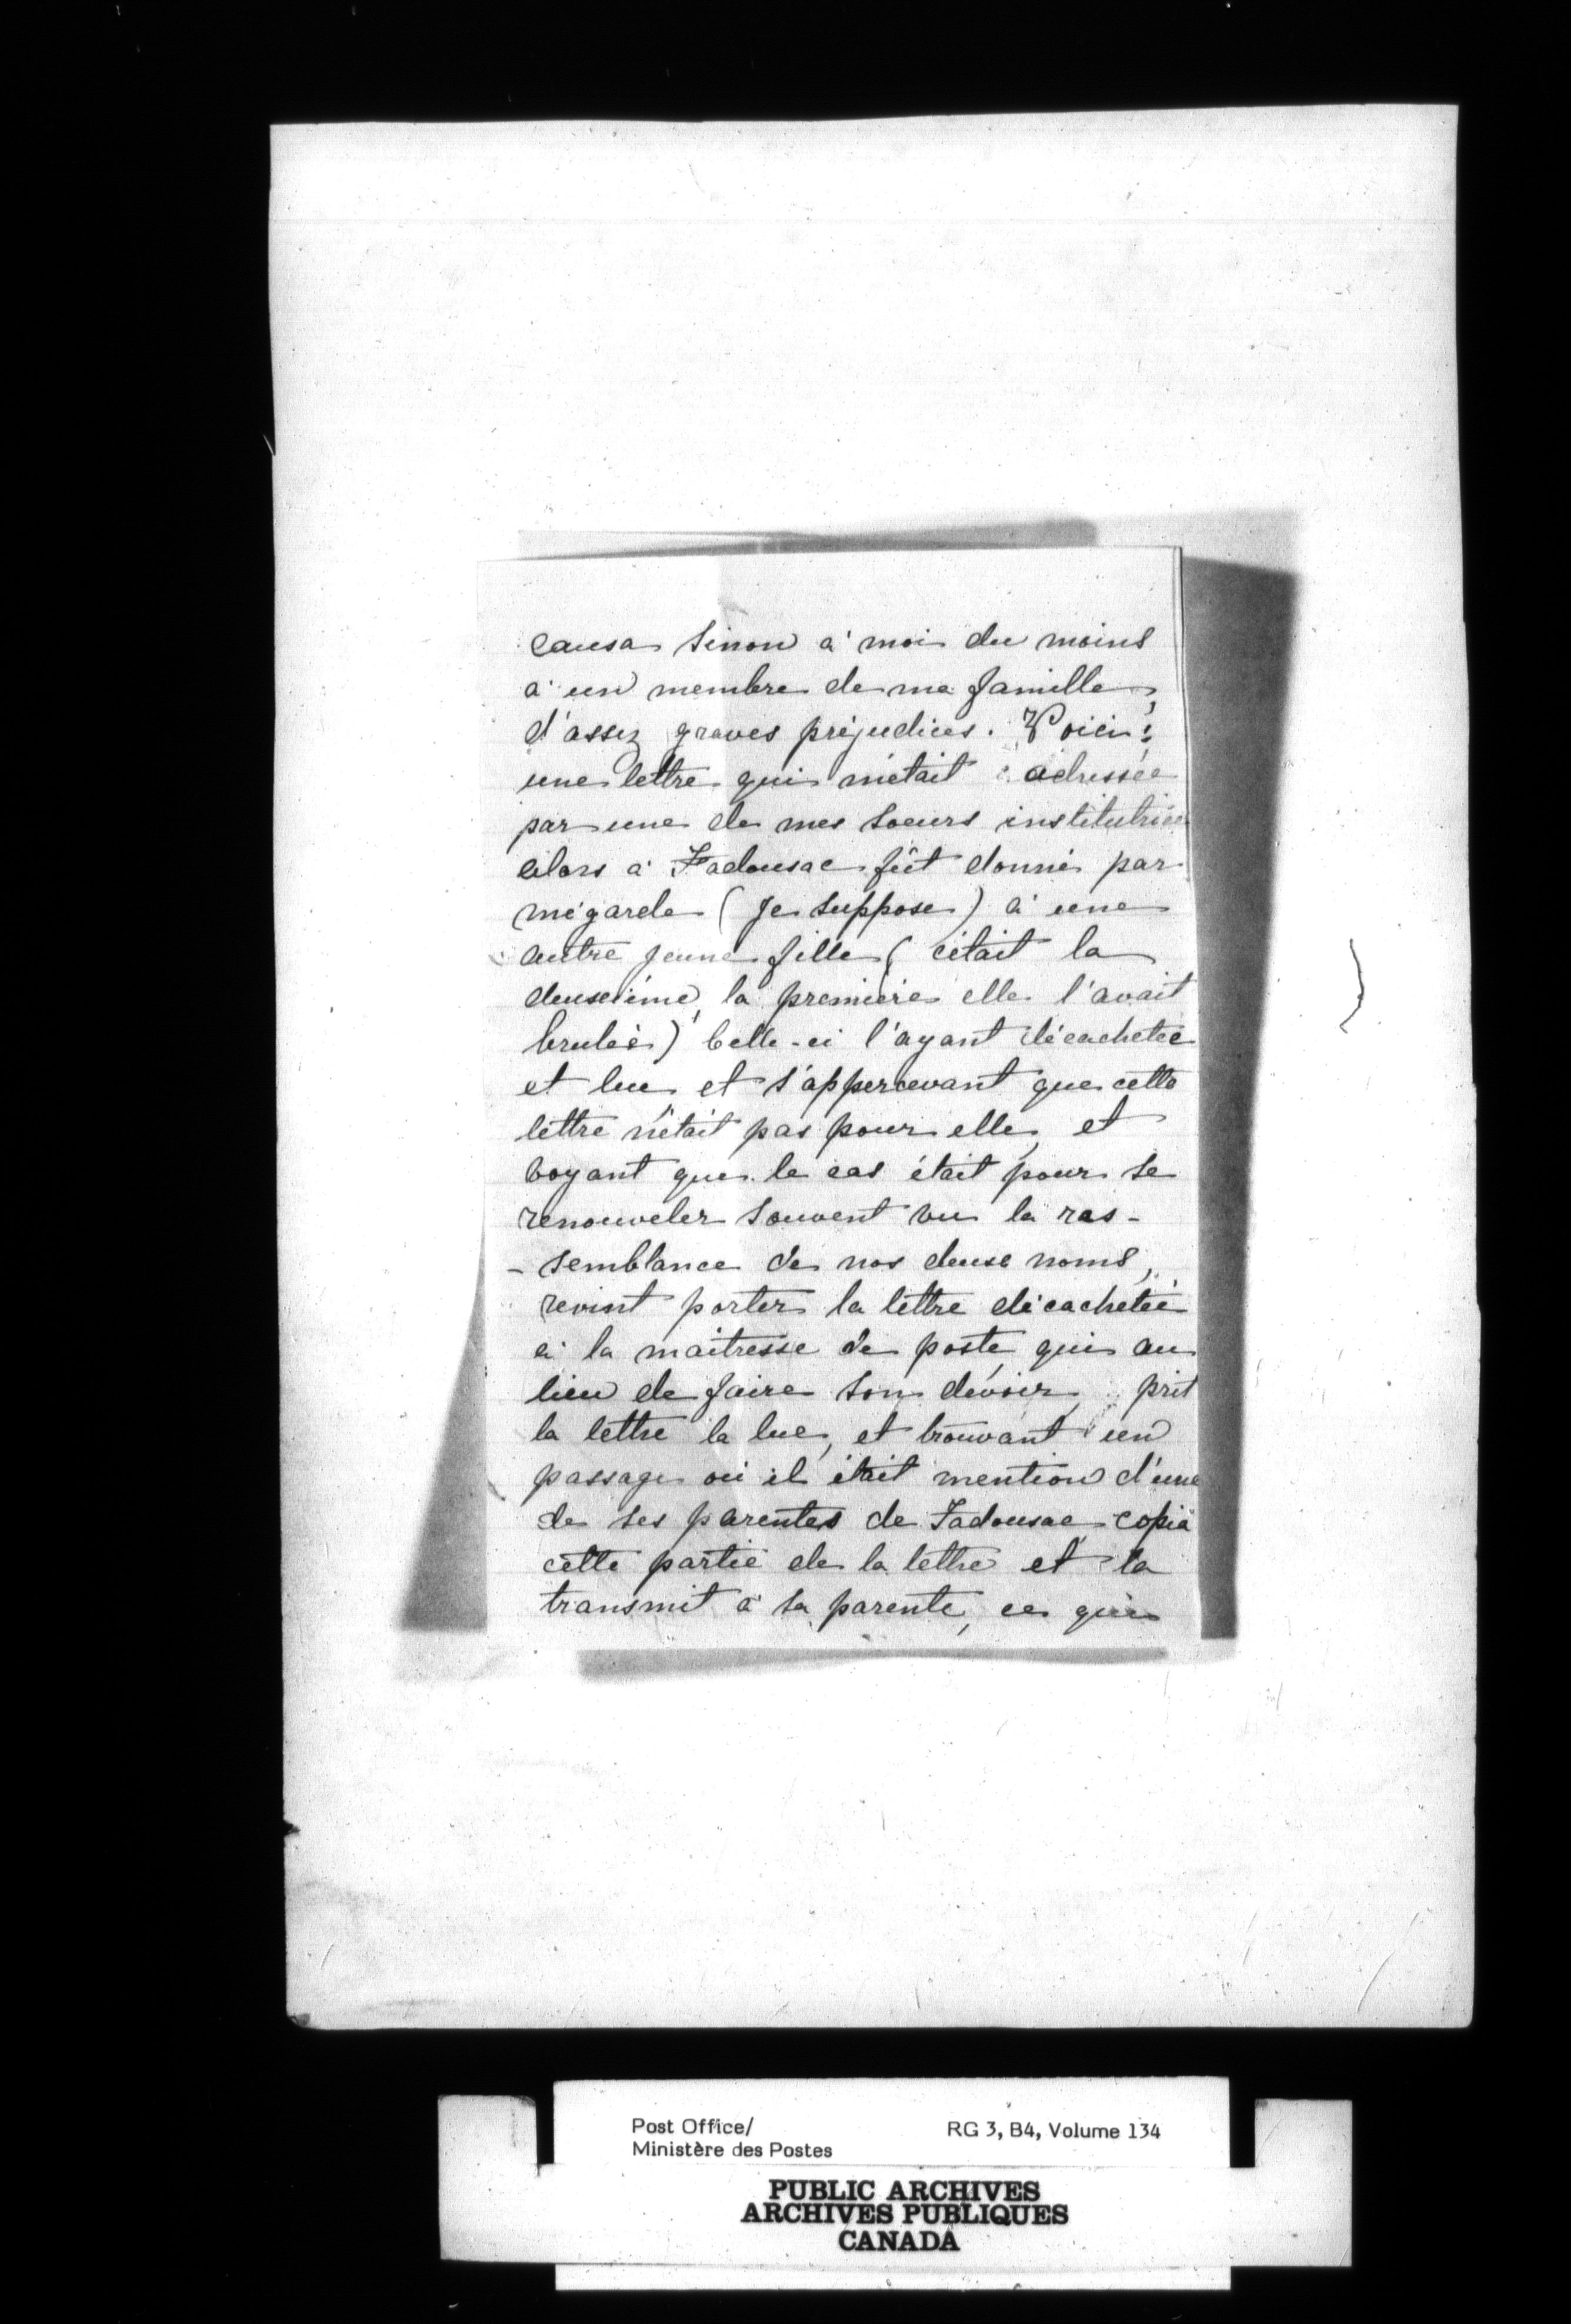 causa sinon à moi du moins
à un membre de ma famille,
d'assez graves préjudices. Voici:
une lettre qui m'était adressée
par une de mes soeurs institutrice
alors à Tadousac fût donné par
mégarde (je suppose) à une
autre jeune fille (c'était la
deuxième, la première elle l'avait
brulée) Celle-ci l'ayant décachetée
et lue et s'appercevant que cette
lettre n'était pas pour elle, et
voyant que le cas était pour se
renouveler souvent vu la res-
-semblance de nos deux noms,
revint porter la lettre décachetée
à la maitresse de poste qui au
lieu de faire son devoir, prit
la lettre la lue, et trouvant un
passage où il était mention d'une
de ses parentes de Tadousac copia
cette partie de la lettre et la
transmit à sa parente, ce qui
Post Office/ RG 3, B4, Volume 134
Ministère des Postes
PUBLIC ARCHIVES
ARCHIVES PUBLIQUES
CANADA